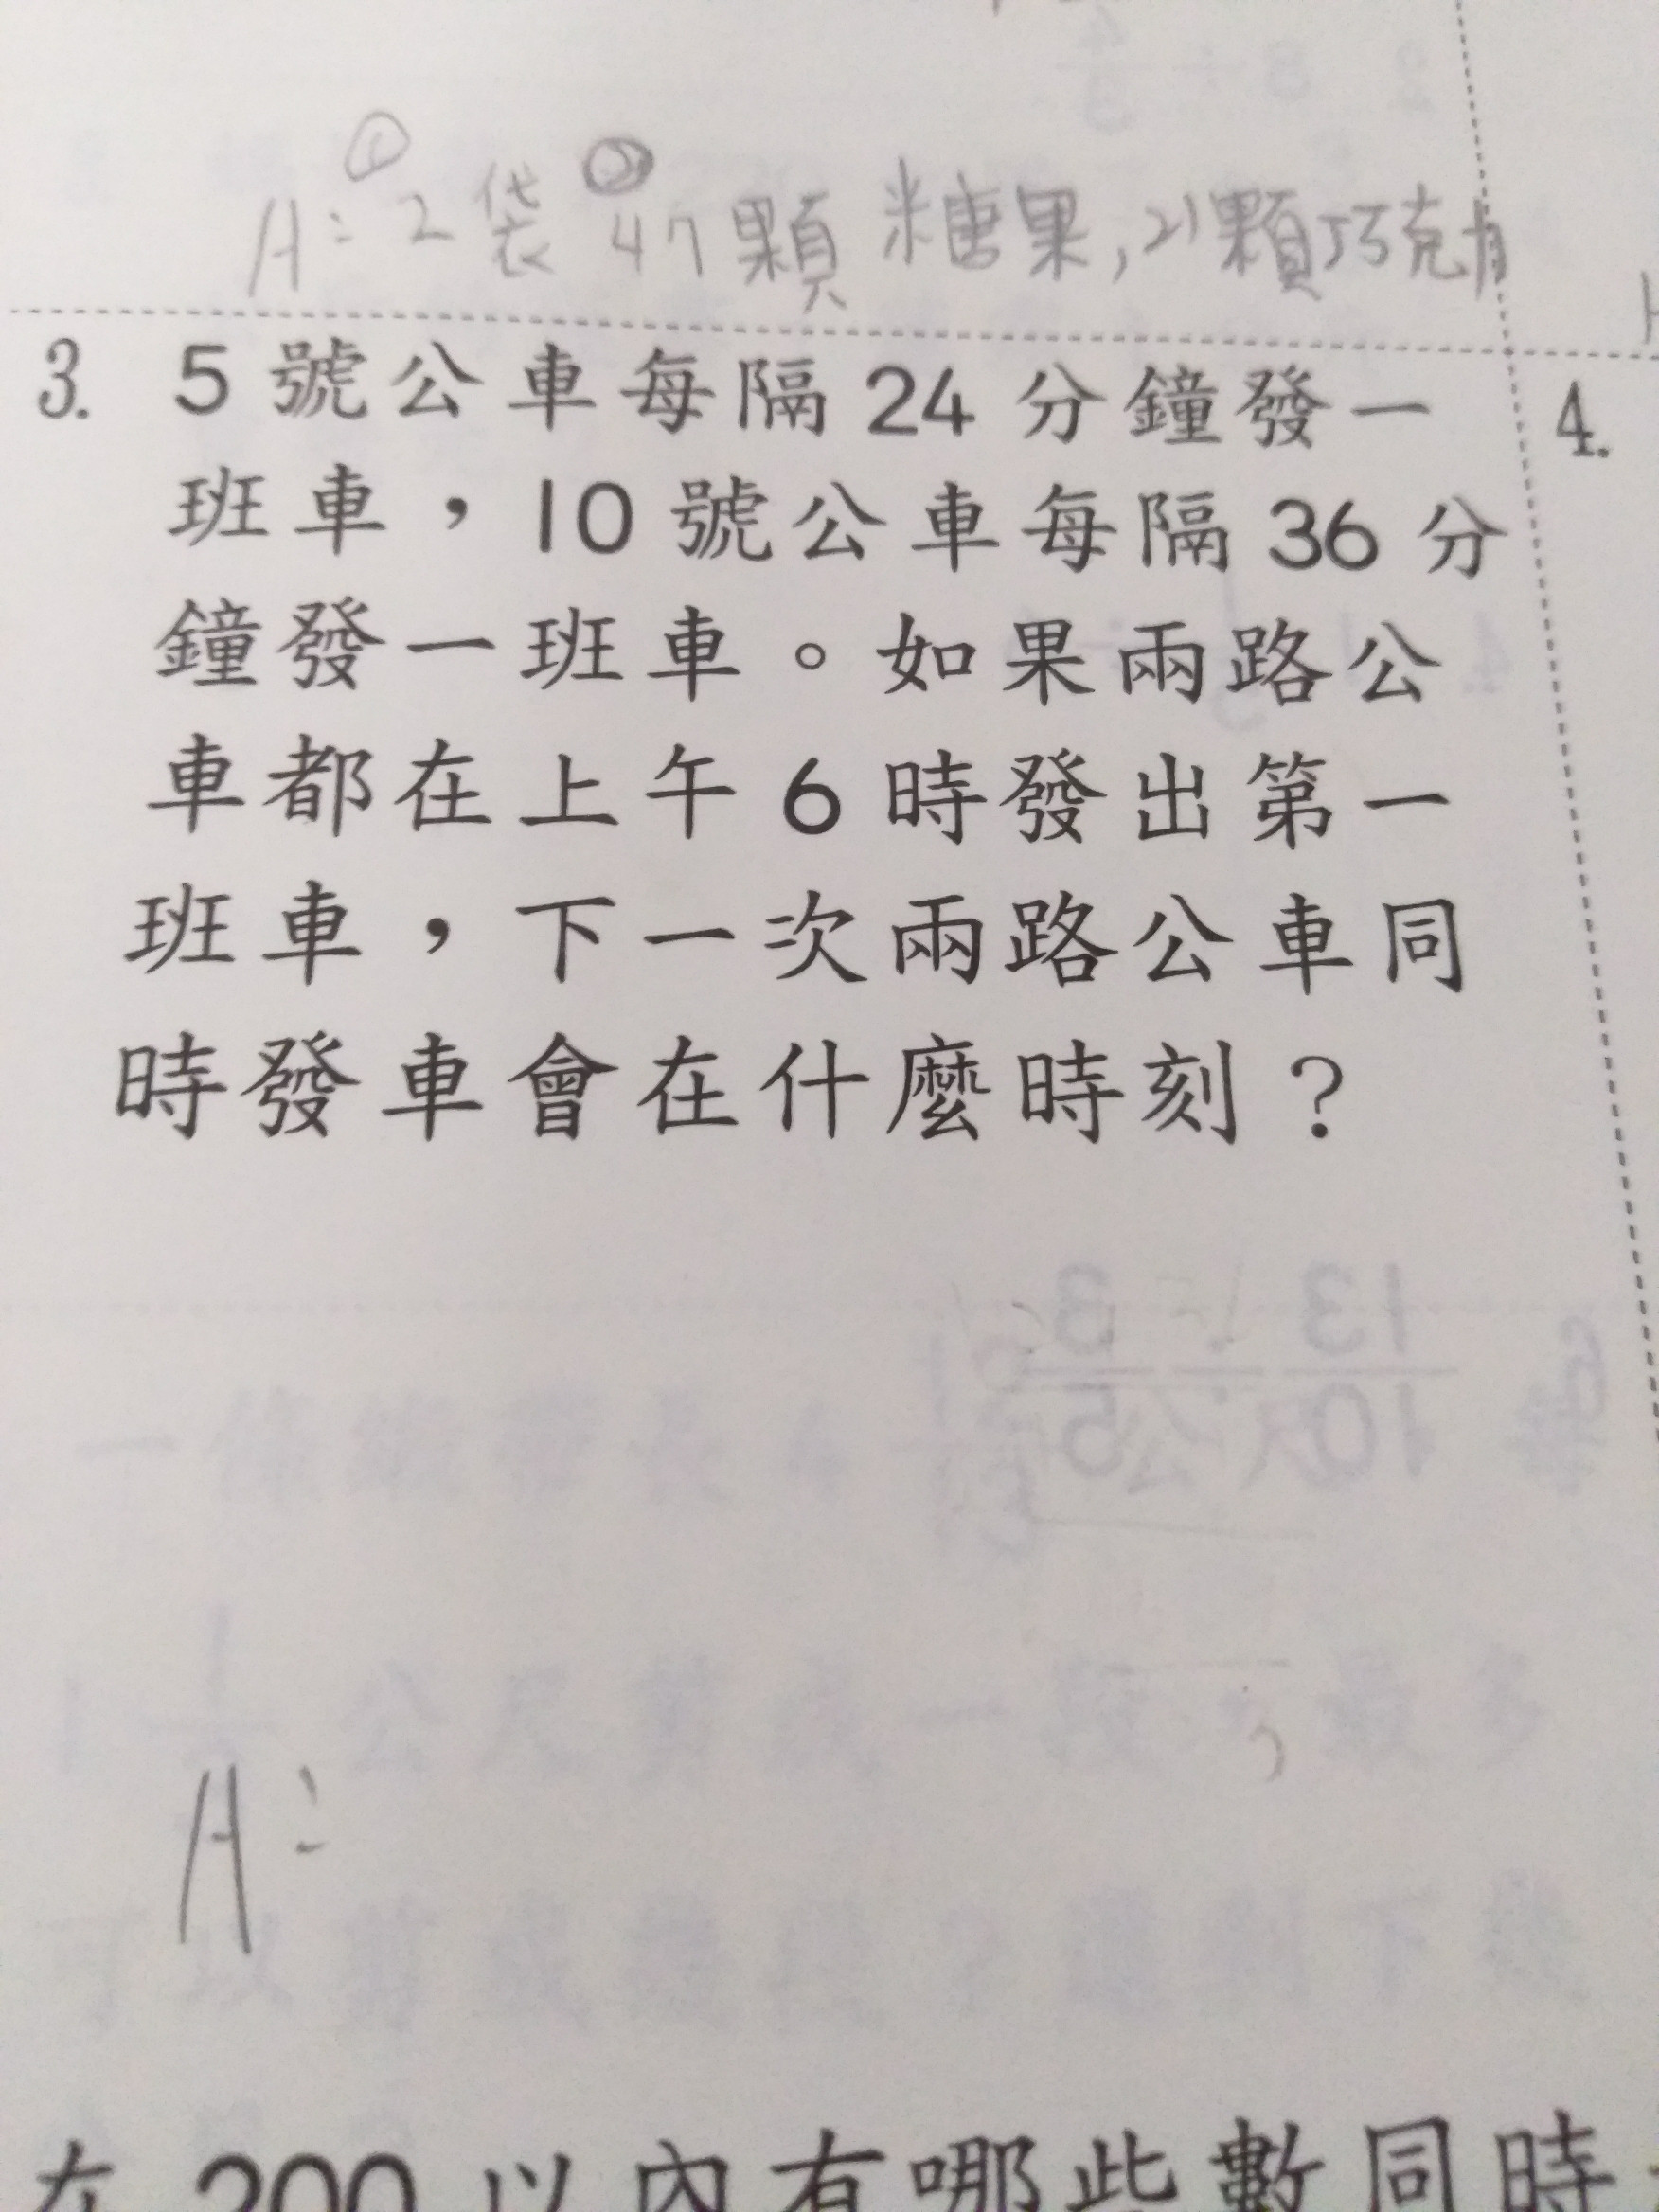 A：①2袋 ②47顆糖果，21顆巧克力
3. 5號公車每隔24分鐘發一
4.
班車，10號公車每隔36分
鐘發一班車。如果兩路公
車都在上午6時發出第一
班車，下一次兩路公車同
時發車會在什麼時刻？
A：
在200以內有哪些數同時